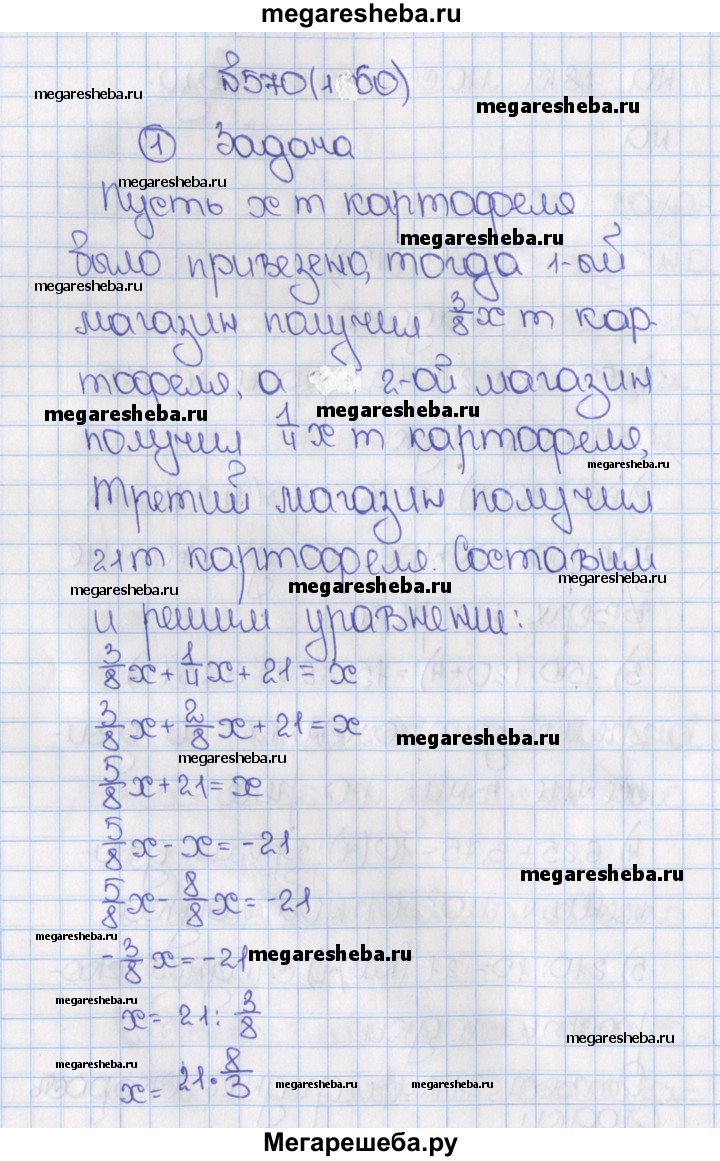 megaresheba.ru
В570(1 60)
megaresheba.ru
megaresheba.ru
① Задача
megaresheba.ru
Пусть x т картофеля
megaresheba.ru
было привезено, тогда 1-ый
megaresheba.ru
магазин получил 3/8 x т кар-
тофеля, а 2-ой магазин
megaresheba.ru
megaresheba.ru
получил 1/4 x т картофеля,
megaresheba.ru
третий магазин получил
21 т картофеля. Составим
megaresheba.ru
megaresheba.ru
megaresheba.ru
и решим уравнение:
3/8 x + 1/4 x + 21 = x
3/8 x + 2/8 x + 21 = x
megaresheba.ru
megaresheba.ru
5/8 x + 21 = x
5/8 x - x = -21
megaresheba.ru
5/8 x - 8/8 x = -21
megaresheba.ru
-3/8 x = -21
megaresheba.ru
megaresheba.ru
x = 21 : 3/8
megaresheba.ru
megaresheba.ru
x = 21 · 8/3
megaresheba.ru
megaresheba.ru
Мегарешеба.ру